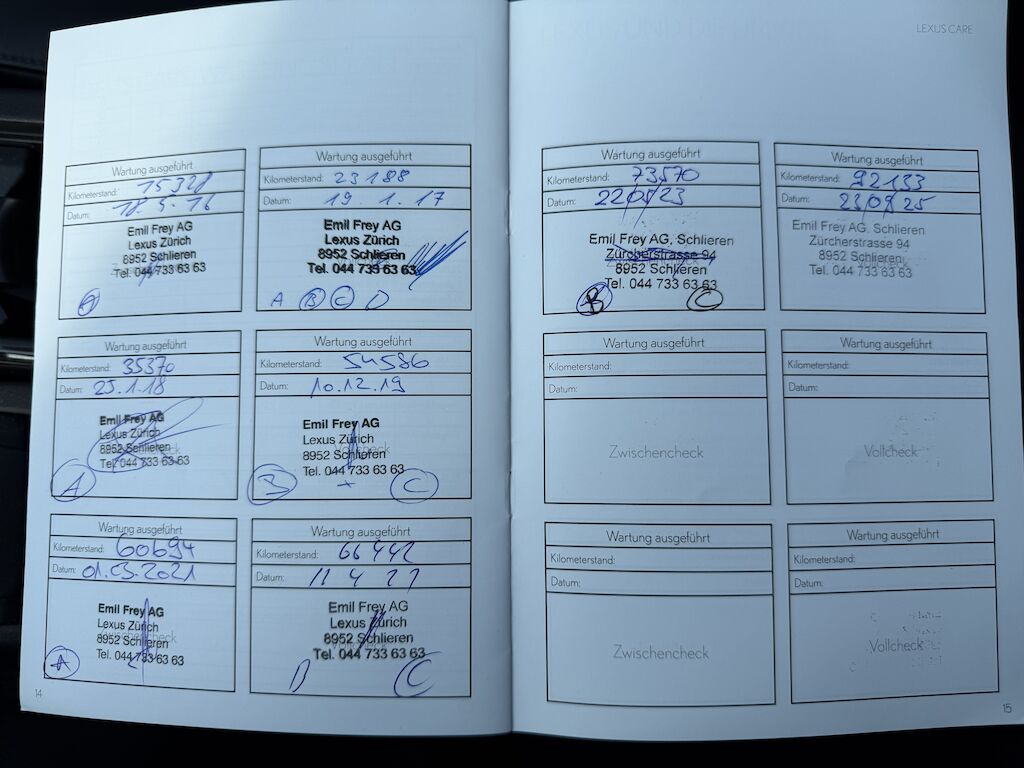 LEXUS CARE
Wartung ausgeführt
Kilometerstand: 15328
Datum: 18.5.16
Emil Frey AG
Lexus Zürich
8952 Schlieren
Tel. 044 733 63 63
A
Wartung ausgeführt
Kilometerstand: 23188
Datum: 19.1.17
Emil Frey AG
Lexus Zürich
8952 Schlieren
Tel. 044 733 63 63
A B C D
Wartung ausgeführt
Kilometerstand: 35370
Datum: 25.1.18
Emil Frey AG
Lexus Zürich
8952 Schlieren
Tel. 044 733 63 63
A
Wartung ausgeführt
Kilometerstand: 54586
Datum: 10.12.19
Emil Frey AG
Lexus Zürich
8952 Schlieren
Tel. 044 733 63 63
B C
Wartung ausgeführt
Kilometerstand: 60694
Datum: 01.03.2021
Emil Frey AG
Lexus Zürich
8952 Schlieren
Tel. 044 733 63 63
A
Wartung ausgeführt
Kilometerstand: 66442
Datum:
Emil Frey AG
Lexus Zürich
8952 Schlieren
Tel. 044 733 63 63
B C
14
Wartung ausgeführt
Kilometerstand: 73570
Datum:
Emil Frey AG, Schlieren
Zürcherstrasse 94
8952 Schlieren
Tel. 044 733 63 63
B C
Wartung ausgeführt
Kilometerstand: 92133
Datum: 23/09/25
Emil Frey AG, Schlieren
Zürcherstrasse 94
8952 Schlieren
Tel. 044 733 63 63
Wartung ausgeführt
Kilometerstand:
Datum:
Zwischencheck
Wartung ausgeführt
Kilometerstand:
Datum:
Vollcheck
Wartung ausgeführt
Kilometerstand:
Datum:
Zwischencheck
Wartung ausgeführt
Kilometerstand:
Datum:
Vollcheck
15